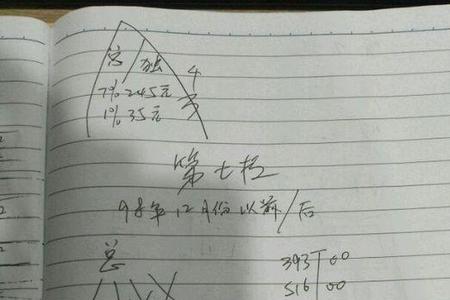 总/独 4
7% 245元 3
1% 35元
第七栏
98年12月份以前/后
总
393 00
516 00